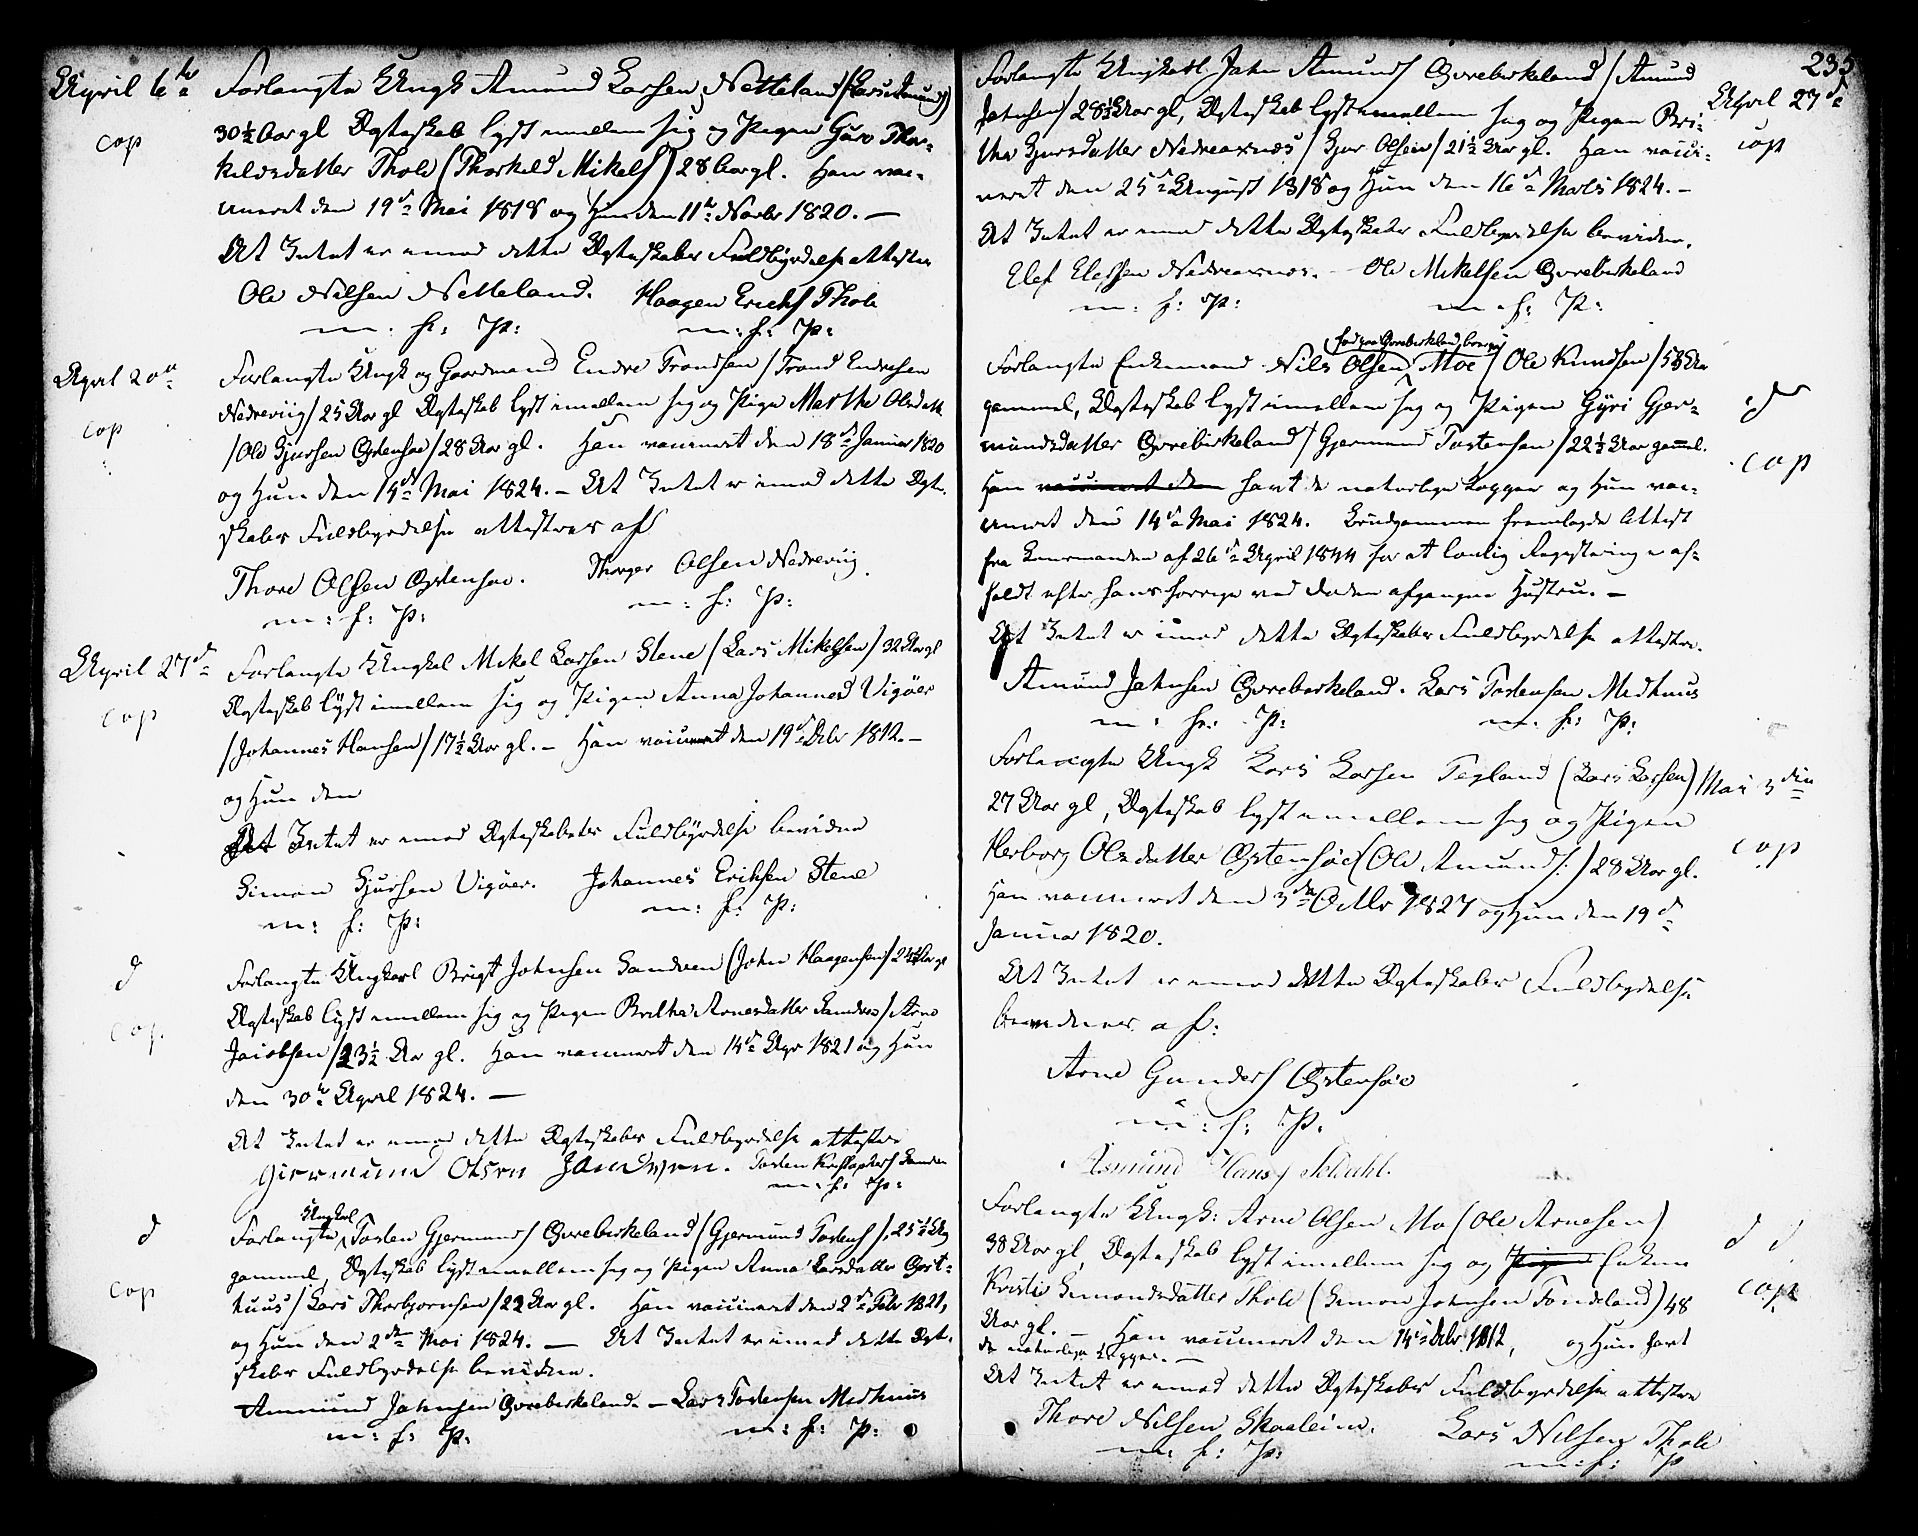 April 6te
cop
Forlangte Ungk Amund Larsen Netteland (Lars Amunds)
30½ Aar gl Ægteskab lyst imellem sig og Pigen Guro Thor-
kildsdatter Thole (Thorkild Mikels) 28 Aar gl. Han vac-
cineret den 19de Mai 1818 og Hun den 11te Novbr 1820. —
At Intet er imod dette Ægteskabs Fuldbyrdelse attestere
Ole Nilsen Netteland. Haagen Erichs Thole
m: f: P: m: f: P:
April 20de
cop
Forlangte Ungk og Gaardmand Endre Trondsen / Trond Endresen
Nedreviig / 25 Aar gl Ægteskab lyst imellem sig og Pige Marthe Olsdatt
/ Ole Sjursen Østensøe / 28 Aar gl. Han vaccineret den 18de Januar 1820
og Hun den 14de Mai 1824. – At Intet er imod dette Ægte-
skabs Fuldbyrdelse attesteres af
Thore Olsen Østensøe. Thorger Olsen Nedreviig.
m: f: P: m: f: P:
April 27de
cop
Forlangte Ungkal Mikel Larsen Stene / Lars Mikelsen / 32 Aar gl
Ægteskab lyst imellem sig og Pigen Anna Johannesd Vigöer
/ Johannes Hansen / 17½ Aar gl. – Han vaccineret den 19de Debr 1812. –
og Hun den
At Intet er imod Ægteskabets Fuldbyrdelse bevidne
Simon Sjursen Vigöer. Johannes Eriksen Stene
m: f: P: m: f: P:
d
cop
Forlangte Ungkarl Brigt Johnsen Sandven (John Haagensen) 24½ Aar gl
Ægteskab lyst imellem sig og Pigen Britha Arnesdatter Sandven / Arne
Jacobsen / 23½ Aar gl. Han vaccineret den 14de Apr 1821 og Hun
den 30te April 1824. —
At Intet er imod dette Ægteskabs Fuldbyrdelse attestere
Giermund Olsen Sandven. Tosten Sanden
m: f: P:
d
cop
Ungkarl
Forlangte Tosten Gjermunds Øvrebirkeland / Gjermund Tostens / 25½ Aar
gammel, Ægteskab lyst imellem sig og Pigen Anna Larsdatter Øyst-
huus / Lars Thorbjornsen / 22 Aar gl. Han vaccineret den 2de Febr 1821,
og Hun den 2den Mai 1824. — At Intet er imod dette Ægte-
skabs Fuldbyrdelse bevidne.
Ammund Johnsen Øvrebirkeland. – Lars Tostensen Medhuus
m: f: P: m: f: P:
235
April 27de
cop
Forlangte Ungkarl John Amunds Øvrebirkeland / Amund
Johnsen / 28½ Aar gl, Ægteskab lyst imellem sig og Pigen Bri-
tha Sjursdatter Nedreaxnæs / Sjur Olsen / 21½ Aar gl. Han vacci-
neret den 25de August 1818 og Hun den 16de Marts 1824. –
At Intet er imod dette Ægteskabs Fuldbyrdelse bevidne.
Elef Elefsen Nedreaxnæs. – Ole Mikelsen Øvrebirkeland
m: f: P: m: f: P:
d
cop
Forlangte Enkemand Nils Olsen Moe / Ole Knudsen / 58 Aar
gammel, Ægteskab lyst imellem sig og Pigen Gyri Gjer-
mundsdatter Øvrebirkeland / Gjermund Tostensen / 22½ Aar gammel.
Han vaccineret den havt de naturlige Kopper og Hun vac-
cineret den 14de Mai 1824. Brudgommen fremlagde Attest
fra Lensmanden af 26de April 1844 for at lovlig Registrering er af-
holdt efter hans forrige ved Døden afgangne Hustru. –
At Intet er imod dette Ægteskabs Fuldbyrdelse attestere.
Amund Johnsen Øvrebirkeland. Lars Tostensen Medhuus
m: f: P: m: f: P:
Mai 3die
cop
Forlangte Ungk Lars Larsen Tegland (Lars Larsen)
27 Aar gl, Ægteskab lyst imellem sig og Pigen
Herborg Olsdatter Østensöe (Ole Amunds:) 28 Aar gl.
Han vaccineret den 3de Octbr 1827 og Hun den 19de
Januar 1820.
At Intet er imod dette Ægteskabs Fuldbyrdelse
bevidnes af:
Arne Gunders Østensøe
m: f: P:
Asmund Hansf
d d
cop
Forlangte Ungk: Arne Olsen Mo (Ole Arnesen)
38 Aar gl, Ægteskab lyst imellem sig og Pigen Enken
Kristi Simonsdatter Thole (Simon Johnsen Fondeland) 48
Aar gl. – Han vaccineret den 14de Debr 1812, og Hun havt
de naturlige Kopper. —
At Intet er imod dette Ægteskabs Fuldbyrdelse attestere
Thore Nilsen Skaaleim. Lars Nilsen Thole
m: f: P: m: f: P